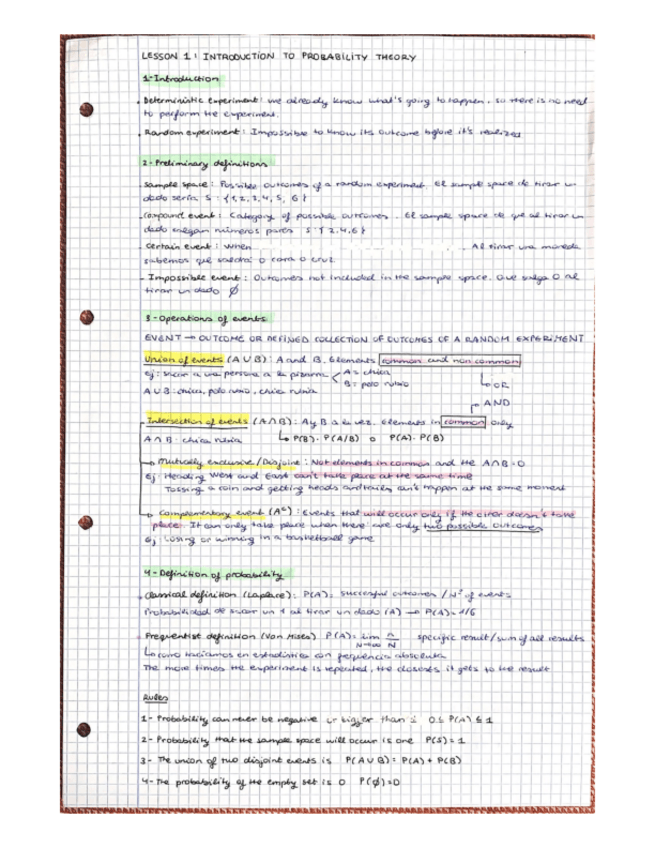 LESSON 1: INTRODUCTION TO PROBABILITY THEORY
1-Introduction
. Deterministic experiment: we already know what's going to happen, so there is no need
to perform the experiment.
. Random experiment: Impossible to know its outcome before it's realized
2-Preliminary definitions
. Sample space: Possible outcomes of a random experiment. El sample space de tirar un
dado sería S: {1, 2, 3, 4, 5, 6}
. Compound event: Category of possible outcomes. El sample space de que al tirar un
dado salgan números pares S: {2,4,6}
- Certain event: When . Al tirar una moneda
sabemos que saldrá o cara o cruz
- Impossible event: Outcomes not included in the sample space. Que salga 0 al
tirar un dado ∅
3-Operations of events
EVENT → OUTCOME OR DEFINED COLLECTION OF OUTCOMES OF A RANDOM EXPERIMENT
Union of events (A∪B): A and B. Elements common and non common
ej: sacar a una persona a la pizarra A = chica
B: pelo rubio
OR
A∪B: chica, pelo rubio, chica rubia
AND
- Intersection of events (A∩B): A y B a la vez. Elements in common only
A∩B: chica rubia P(B)· P(A/B) o P(A)· P(B)
Mutually exclusive/Disjoint: Not elements in common and the A∩B=0
ej: Heading West and East can't take place at the same time
Tossing a coin and getting heads and tails can't happen at the same moment
Complementary event (Aᶜ): Events that will occur only if the other doesn't take
place. It can only take place when there are only two possible outcomes
ej: Losing or winning in a basketball game
4-Definition of probability
. Classical definition (Laplace): P(A)= successful outcomes / Nº of events
Probabilidad de sacar un 1 al tirar un dado (A) → P(A)=1/6
. Frequentist definition (Von Mises) P(A)= lim n/N specific result/sum of all results
N→∞
Lo como hacíamos en estadística con frequencia absoluta
The more times the experiment is repeated, the closest it gets to the result
Rules
1- Probability can never be negative or bigger than 1 0≤P(A)≤1
2- Probability that the sample space will occur is one P(S)=1
3- The union of two disjoint events is P(A∪B)= P(A)+P(B)
4-The probability of the empty set is 0 P(∅)=0